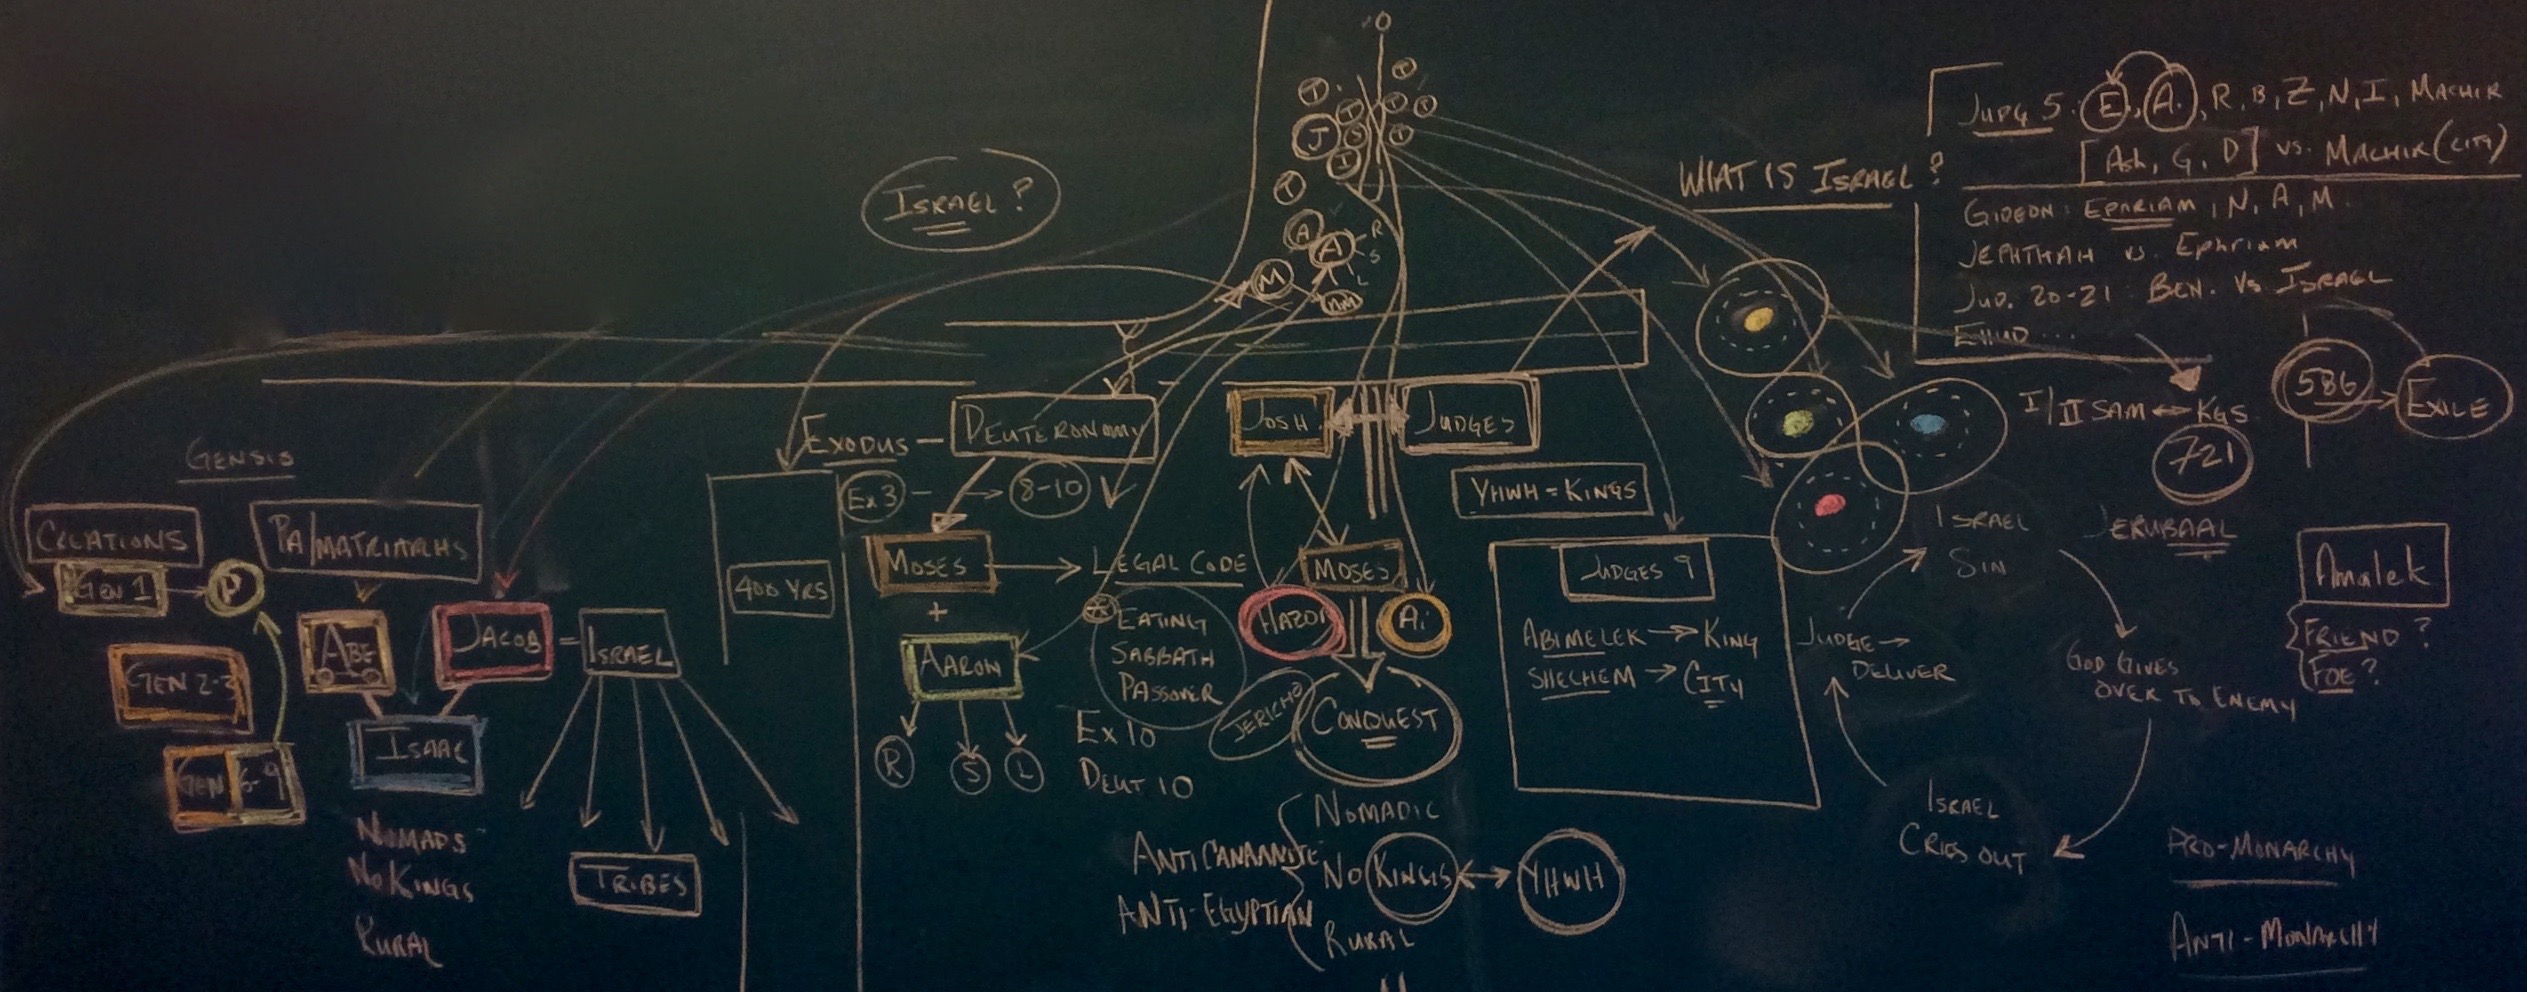 GENSIS
CREATIONS
GEN 1
P
GEN 2-3
GEN 6-9
PA/MATRIARHS
ABE
JACOB = ISRAEL
ISAAC
NOMADS
NO KINGS
RURAL
TRIBES
ISRAEL?
400 YRS
EXODUS — DEUTERONOMY
EX 3 — → 8-10
MOSES → LEGAL CODE
+
AARON
R S L
EATING
SABBATH
PASSOVER
EX 10
DEUT 10
O
T
T
T
T
T
J
S
T
I
T
A
A
R
S
L
M
NM
JOSH
JUDGES
MOSES
HAZOR
Ai
JERICHO
CONQUEST
ANTI CANAANITE
ANTI-EGYPTIAN
NOMADIC
NO KINGS ↔ YHWH
RURAL
YHWH = KINGS
JUDGES 9
ABIMELEK → KING
SHECHEM → CITY
WHAT IS ISRAEL?
JUDG 5: E, A, R, B, Z, N, I, MACHIR
[Ash, G, D] vs. MACHIR (CITY)
GIDEON: EPHRIAM, N, A, M.
JEPHTHAH vs. Ephriam
JUD. 20-21: BEN. Vs ISRAEL
EHUD ...
I/II SAM ↔ KGS
721
586 → EXILE
JERUBAAL
ISRAEL
SIN
GOD GIVES
OVER TO ENEMY
ISRAEL
CRIES OUT
JUDGE →
DELIVER
Amalek
FRIEND?
FOE?
PRO-MONARCHY
ANTI-MONARCHY